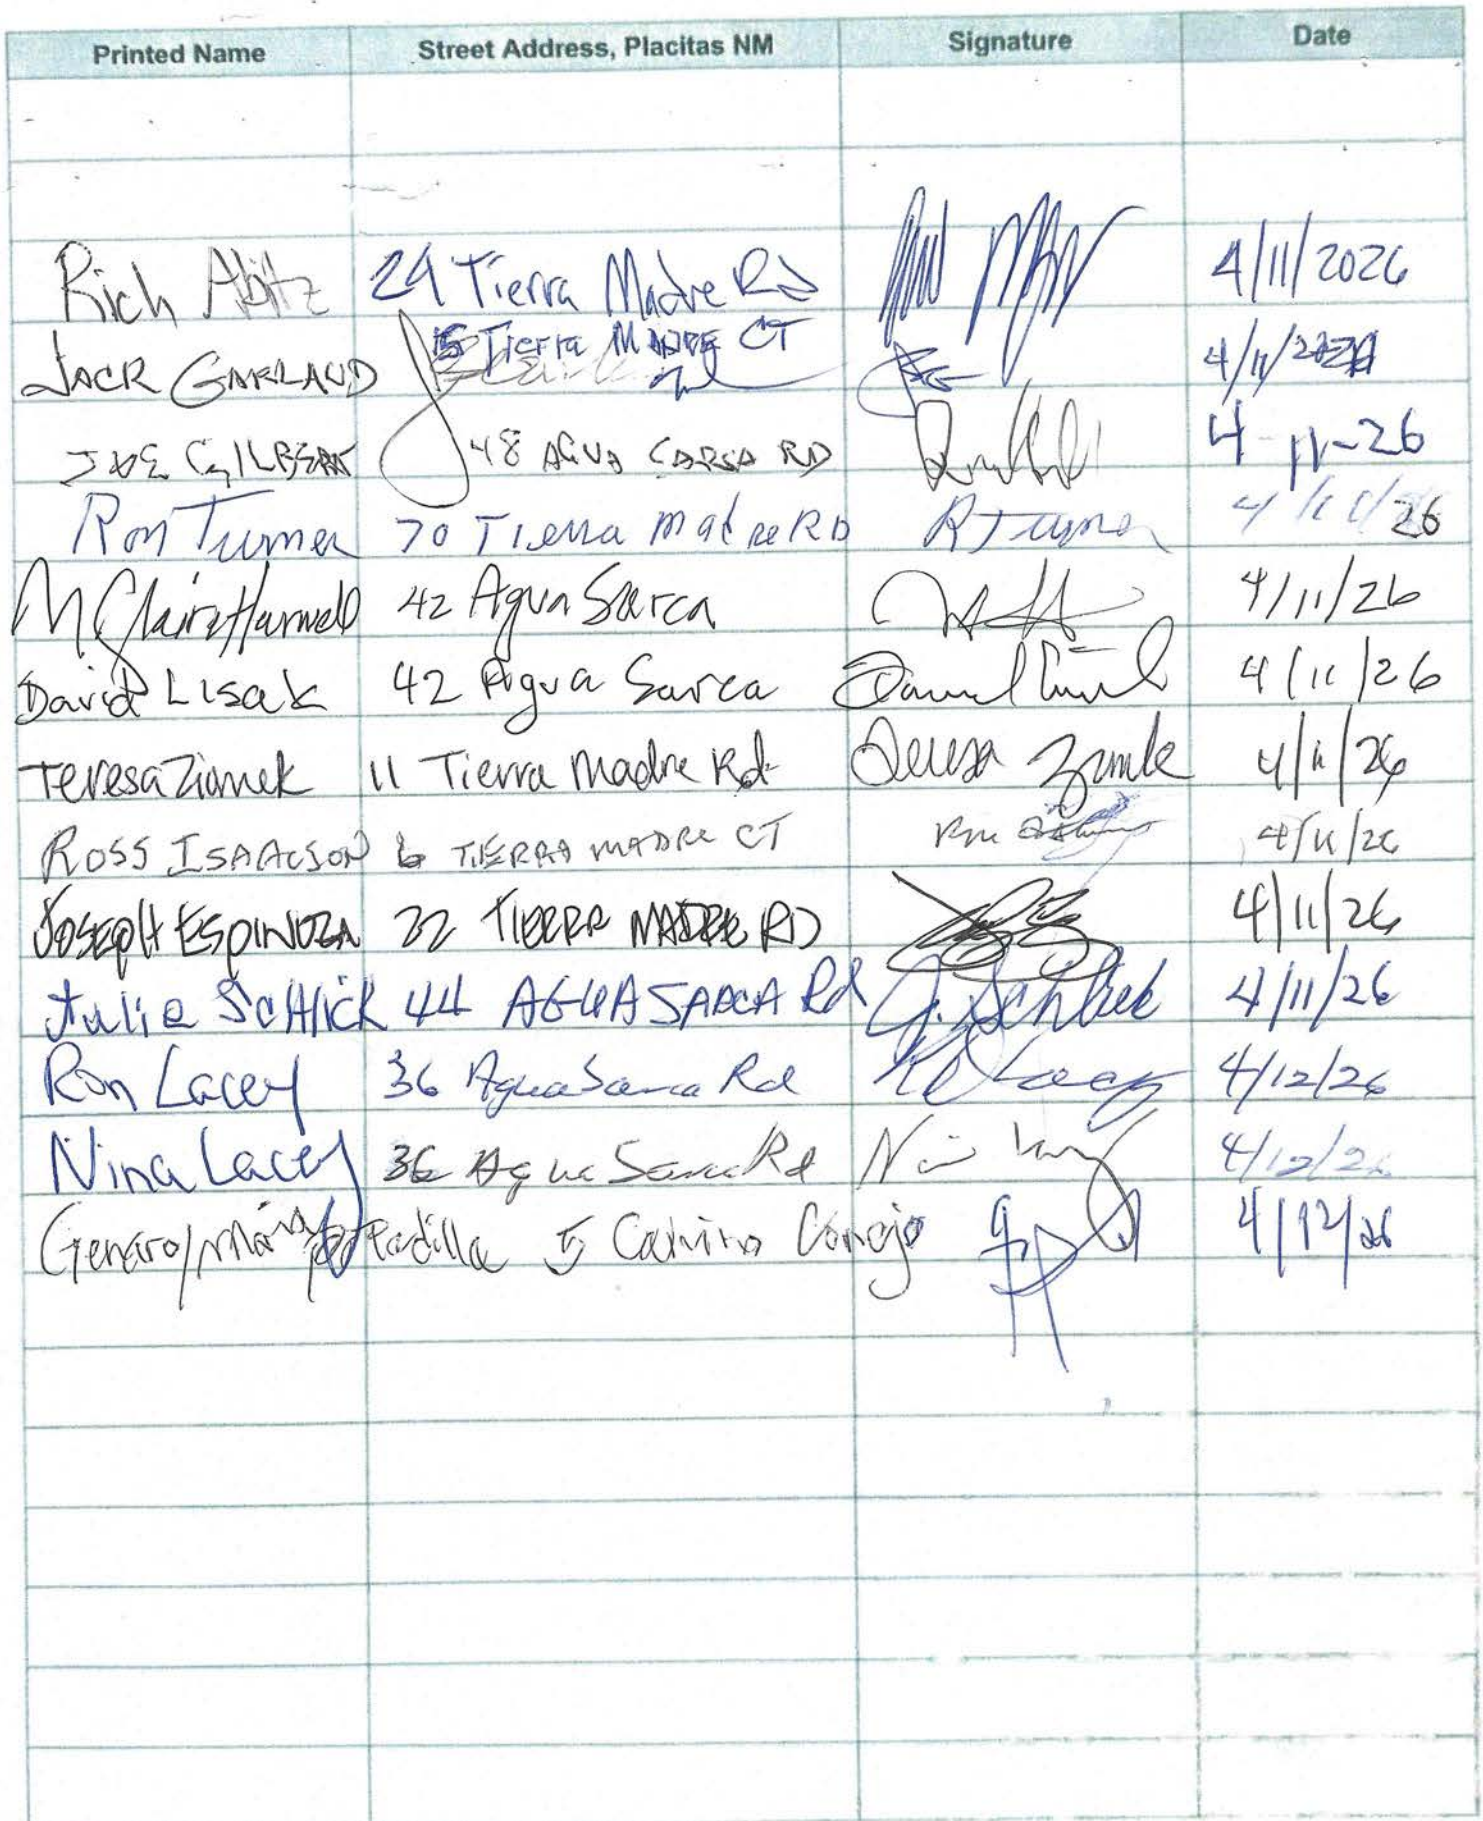 Printed Name Street Address, Placitas NM Signature Date
Rich Abitz 29 Tierra Madre Rd 4/11/2026
JACK GARLAND 15 Tierra MADRE CT 4/11/
JOE GILBERT 48 AGUA RD 4-11-26
Ron Turner 70 Tierra Madre RD R Turner 4/11/26
M Claire Harwell 42 Agua Sarca 4/11/26
David Lisak 42 Agua Sarca 4/11/26
Teresa Ziomek 11 Tierra Madre Rd. Teresa 4/11/26
ROSS ISAACSON 6 TIERRA MADRE CT 4/11/26
JOSEPH ESPINOZA 22 TIERRA MADRE RD 4/11/26
Julie Schlick 44 AGUA SARCA Rd J. Schlick 4/11/26
Ron Lacey 36 Agua Sarca Rd Lacey 4/12/26
Nina Lacey 36 Agua Sarca Rd 4/12/26
Genaro/ Padilla 5 Camino Conejo 4/12/26